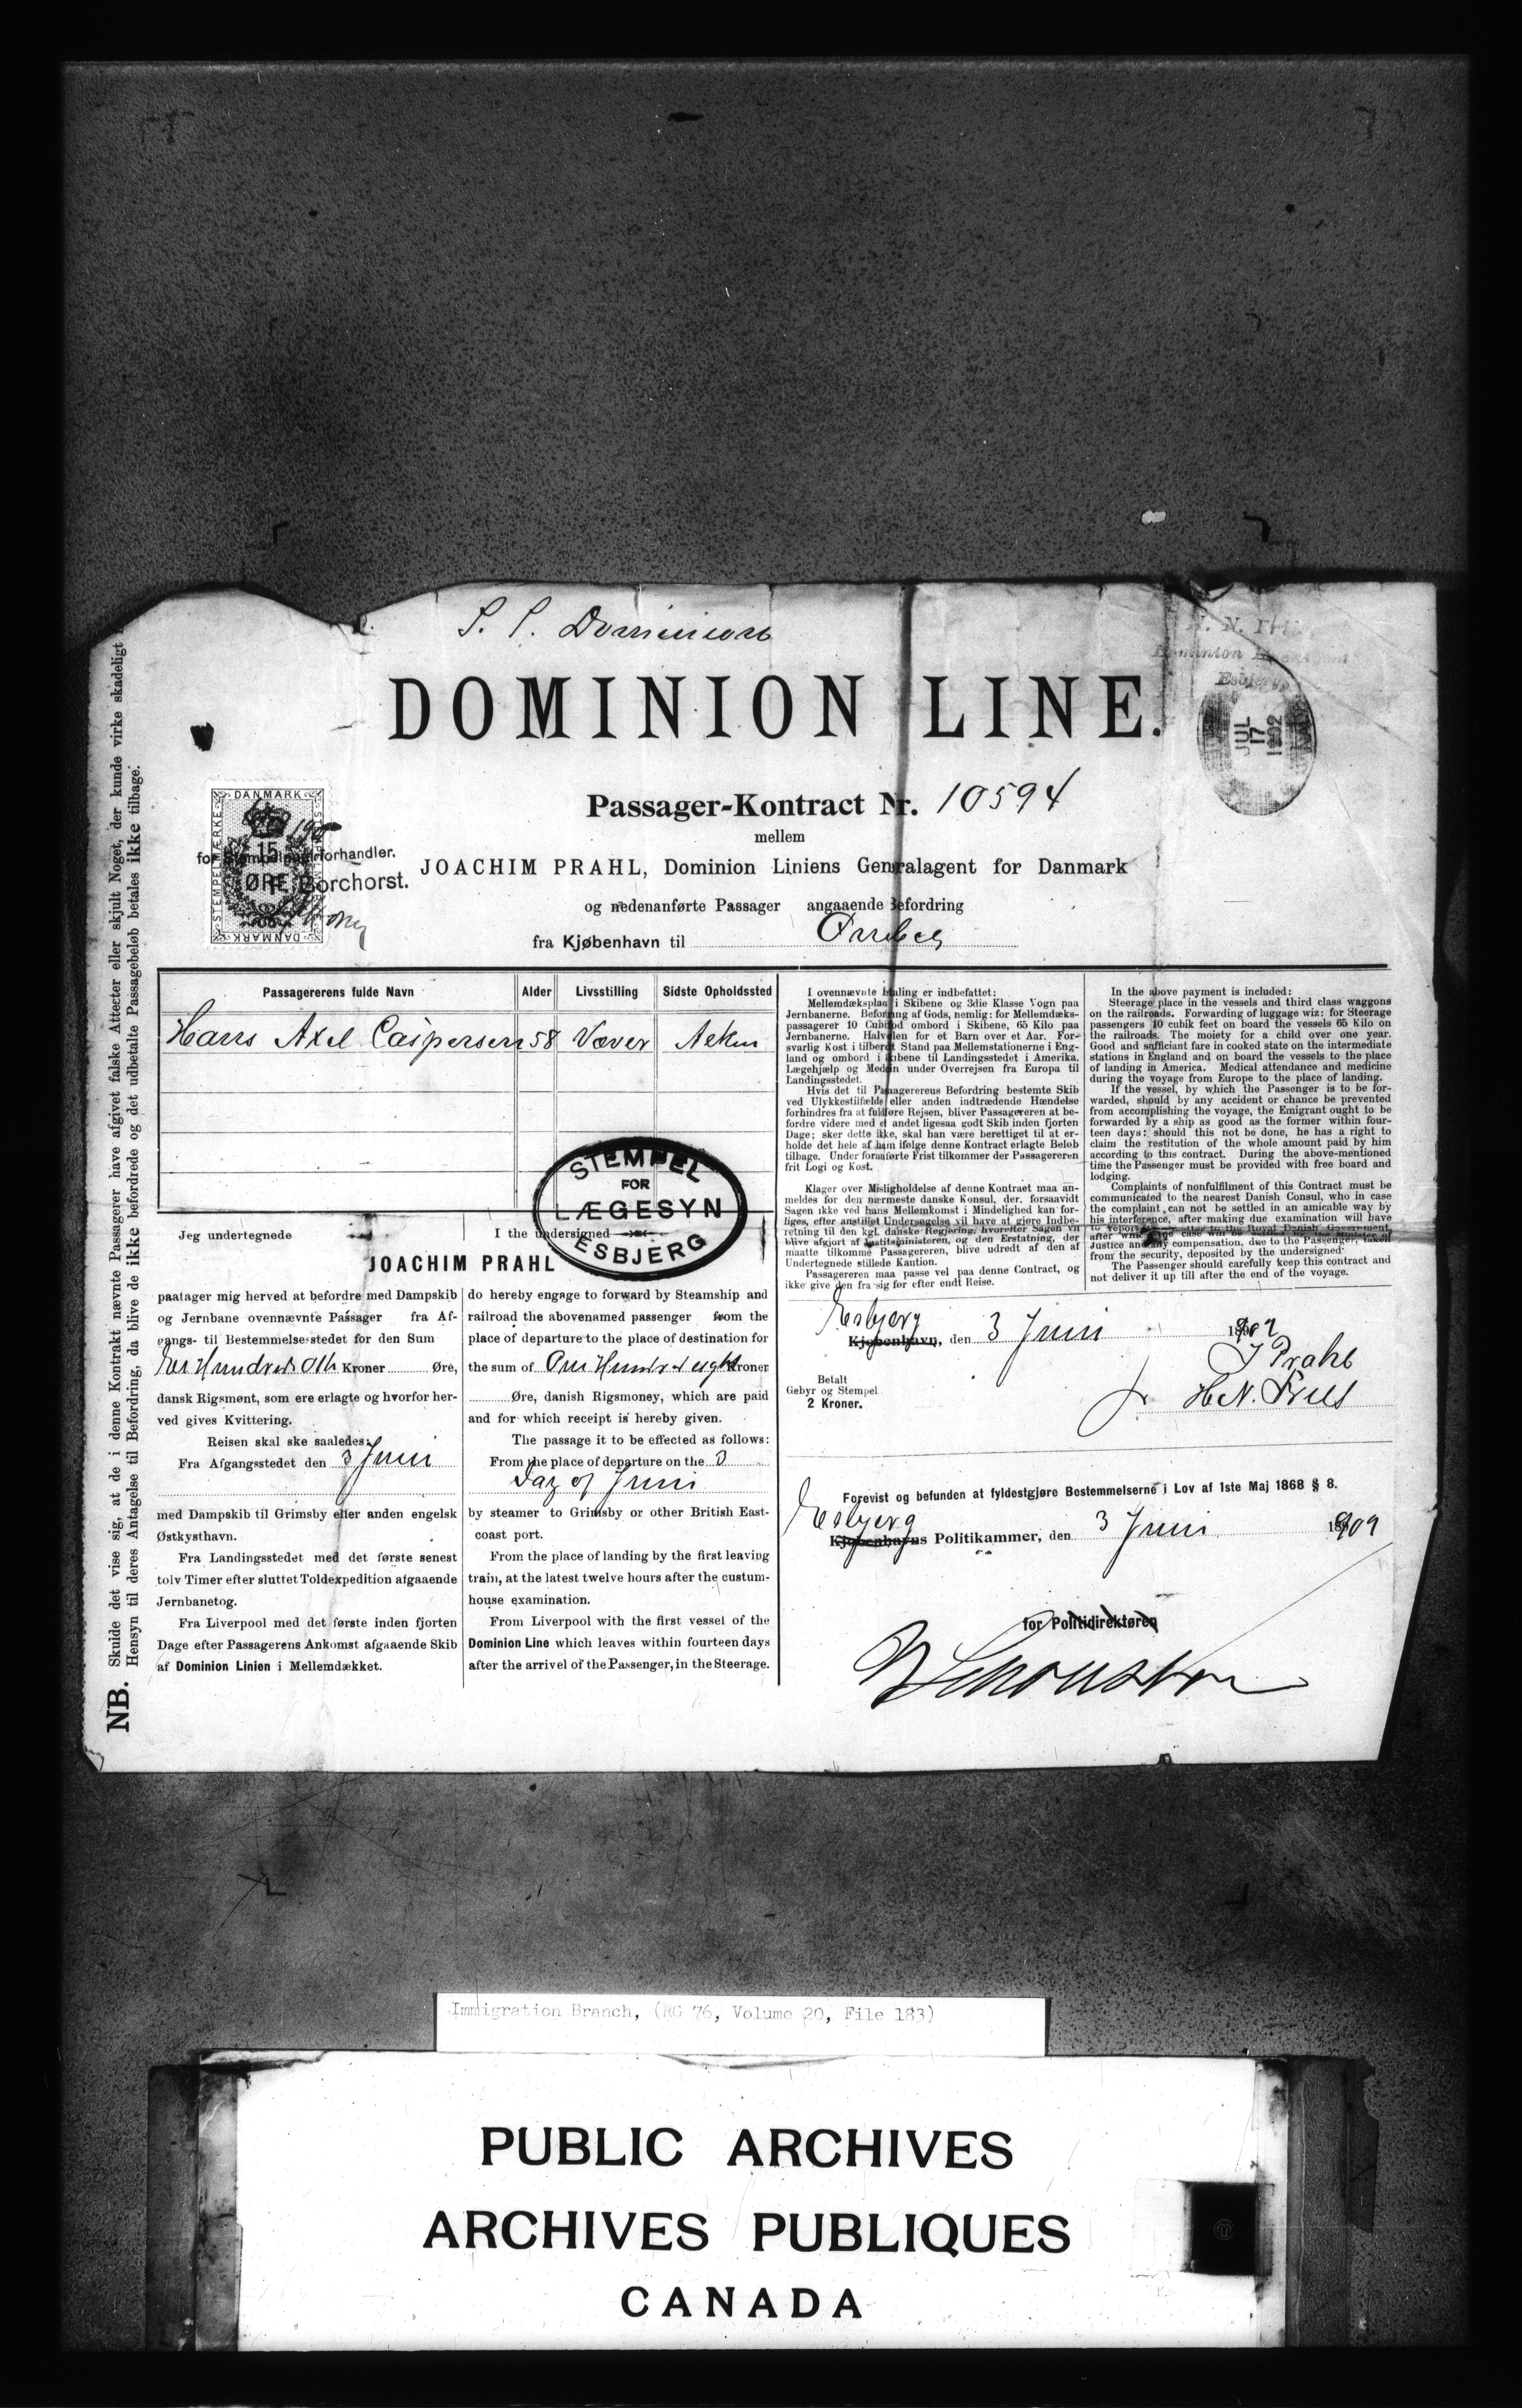 S. S. Dominion
DOMINION LINE.
Dominion Line Agent
Esbjerg
JUL
17
1902
Passager-Kontract Nr. 10594
mellem
JOACHIM PRAHL, Dominion Liniens Generalagent for Danmark
og nedenanførte Passager angaaende Befordring
fra Kjøbenhavn til
DANMARK
STEMPELMÆRKE
15
ØRE
DANMARK
forhandler.
Borchorst.
NB. Skulde det vise sig, at de i denne Kontrakt nævnte Passagerer have afgivet falske Attester eller skjult Noget, der kunde virke skadeligt
Hensyn til deres Antagelse til Befordring, da blive de ikke befordrede og det udbetalte Passagebeløb betales ikke tilbage.
Passagerens fulde Navn Alder Livsstilling Sidste Opholdssted
Hans Axel Caspersen 58 Væver
STEMPEL
FOR
LÆGESYN
ESBJERG
Jeg undertegnede I the undersigned
JOACHIM PRAHL
paatager mig herved at befordre med Dampskib
og Jernbane ovennævnte Passager fra Af-
gangs- til Bestemmelsesstedet for den Sum
Hundrede Otte Kroner Øre,
dansk Rigsmønt, som ere erlagte og hvorfor her-
ved gives Kvittering.
Reisen skal ske saaledes:
Fra Afgangsstedet den 3 Juni
med Dampskib til Grimsby eller anden engelsk
Østkysthavn.
Fra Landingsstedet med det første senest
tolv Timer efter sluttet Toldexpedition afgaaende
Jernbanetog.
Fra Liverpool med det første inden fjorten
Dage efter Passagerens Ankomst afgaaende Skib
af Dominion Linien i Mellemdækket.
do hereby engage to forward by Steamship and
railroad the abovenamed passenger from the
place of departure to the place of destination for
the sum of One Hundred eight Kroner
Øre, danish Rigsmoney, which are paid
and for which receipt is hereby given.
The passage it to be effected as follows:
From the place of departure on the 3
Day of Juni
by steamer to Grimsby or other British East-
coast port.
From the place of landing by the first leaving
train, at the latest twelve hours after the custum-
house examination.
From Liverpool with the first vessel of the
Dominion Line which leaves within fourteen days
after the arrivel of the Passenger, in the Steerage.
I ovennævnte Betaling er indbefattet:
Mellemdæksplads i Skibene og 3die Klasse Vogn paa
Jernbanerne. Befordring af Gods, nemlig: for Mellemdæks-
passagerer 10 Cubikfod ombord i Skibene, 65 Kilo paa
Jernbanerne. Halvdelen for et Barn over et Aar. For-
svarlig Kost i tilberedt Stand paa Mellemstationerne i Eng-
land og ombord i Skibene til Landingsstedet i Amerika.
Lægehjælp og Medicin under Overrejsen fra Europa til
Landingsstedet.
Hvis det til Passagerereus Befordring bestemte Skib
ved Ulykkestilfælde eller anden indtrædende Hændelse
forhindres fra at fuldføre Rejsen, bliver Passagereren at be-
fordre videre med et andet ligesaa godt Skib inden fjorten
Dage; sker dette ikke, skal han være berettiget til at er-
holde det hele af ham ifølge denne Kontract erlagte Beløb
tilbage. Under foranførte Frist tilkommer der Passagereren
frit Logi og Kost.
Klager over Misligholdelse af denne Kontraet maa an-
meldes for den nærmeste danske Konsul, der, forsaavidt
Sagen ikke ved hans Mellemkomst i Mindelighed kan for-
liges, efter anstillet Undersøgelse vil have at gjøre Indbe-
retning til den kgl. danske Regjering, hvorefter Sagen vil
blive afgjort af Justitsministeren, og den Erstatning, der
maatte tilkomme Passagereren, blive udredt af den af
Undertegnede stillede Kaution.
Passagereren maa passe vel paa denne Contract, og
ikke give den fra sig før efter endt Reise.
In the above payment is included:
Steerage place in the vessels and third class waggons
on the railroads. Forwarding of luggage wiz: for Steerage
passengers 10 cubik feet on board the vessels 65 Kilo on
the railroads. The moiety for a child over one year.
Good and sufficiant fare in cooked state on the intermediate
stations in England and on board the vessels to the place
of landing in America. Medical attendance and medicine
during the voyage from Europe to the place of landing.
If the vessel, by which the Passenger is to be for-
warded, should by any accident or chance be prevented
from accomplishing the voyage, the Emigrant ought to be
forwarded by a ship as good as the former within four-
teen days: should this not be done, he has a right to
claim the restitution of the whole amount paid by him
according to this contract. During the above-mentioned
time the Passenger must be provided with free board and
lodging.
Complaints of nonfulfilment of this Contract must be
communicated to the nearest Danish Consul, who in case
the complaint can not be settled in an amicable way by
his interference, after making due examination will have
to report the matter to the Royal Danish Government,
after which the case will be settled by the Minister of
Justice and any compensation, due to the Passenger, taken
from the security, deposited by the undersigned.
The Passenger should carefully keep this contract and
not deliver it up till after the end of the voyage.
Esbjerg
Kjøbenhavn, den 3 Juni 1902
J Prahl
H.N. Friis
Betalt
Gebyr og Stempel
2 Kroner.
Forevist og befunden at fyldestgjøre Bestemmelserne i Lov af 1ste Maj 1868 § 8.
Esbjerg
Kjøbenhavns Politikammer, den 3 Juni 1902
for Politidirektøren
Immigration Branch, (RG 76, Volume 20, File 183)
PUBLIC ARCHIVES
ARCHIVES PUBLIQUES
CANADA